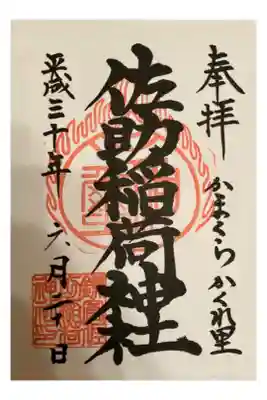 奉拝
かまくらかくれ里
佐助稲荷神社
平成三十年六月二十日